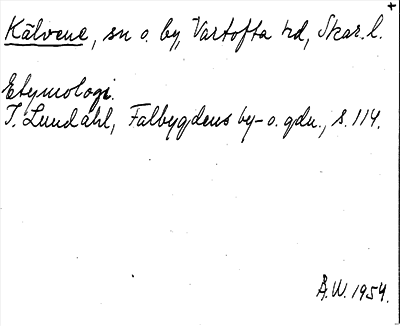 +
Kälvene, sn o. by, Vartofta hd, Skar. l.
Etymologi.
I. Lundahl, Falbygdens by- o. gdn., s. 114.
Å.W. 1954.